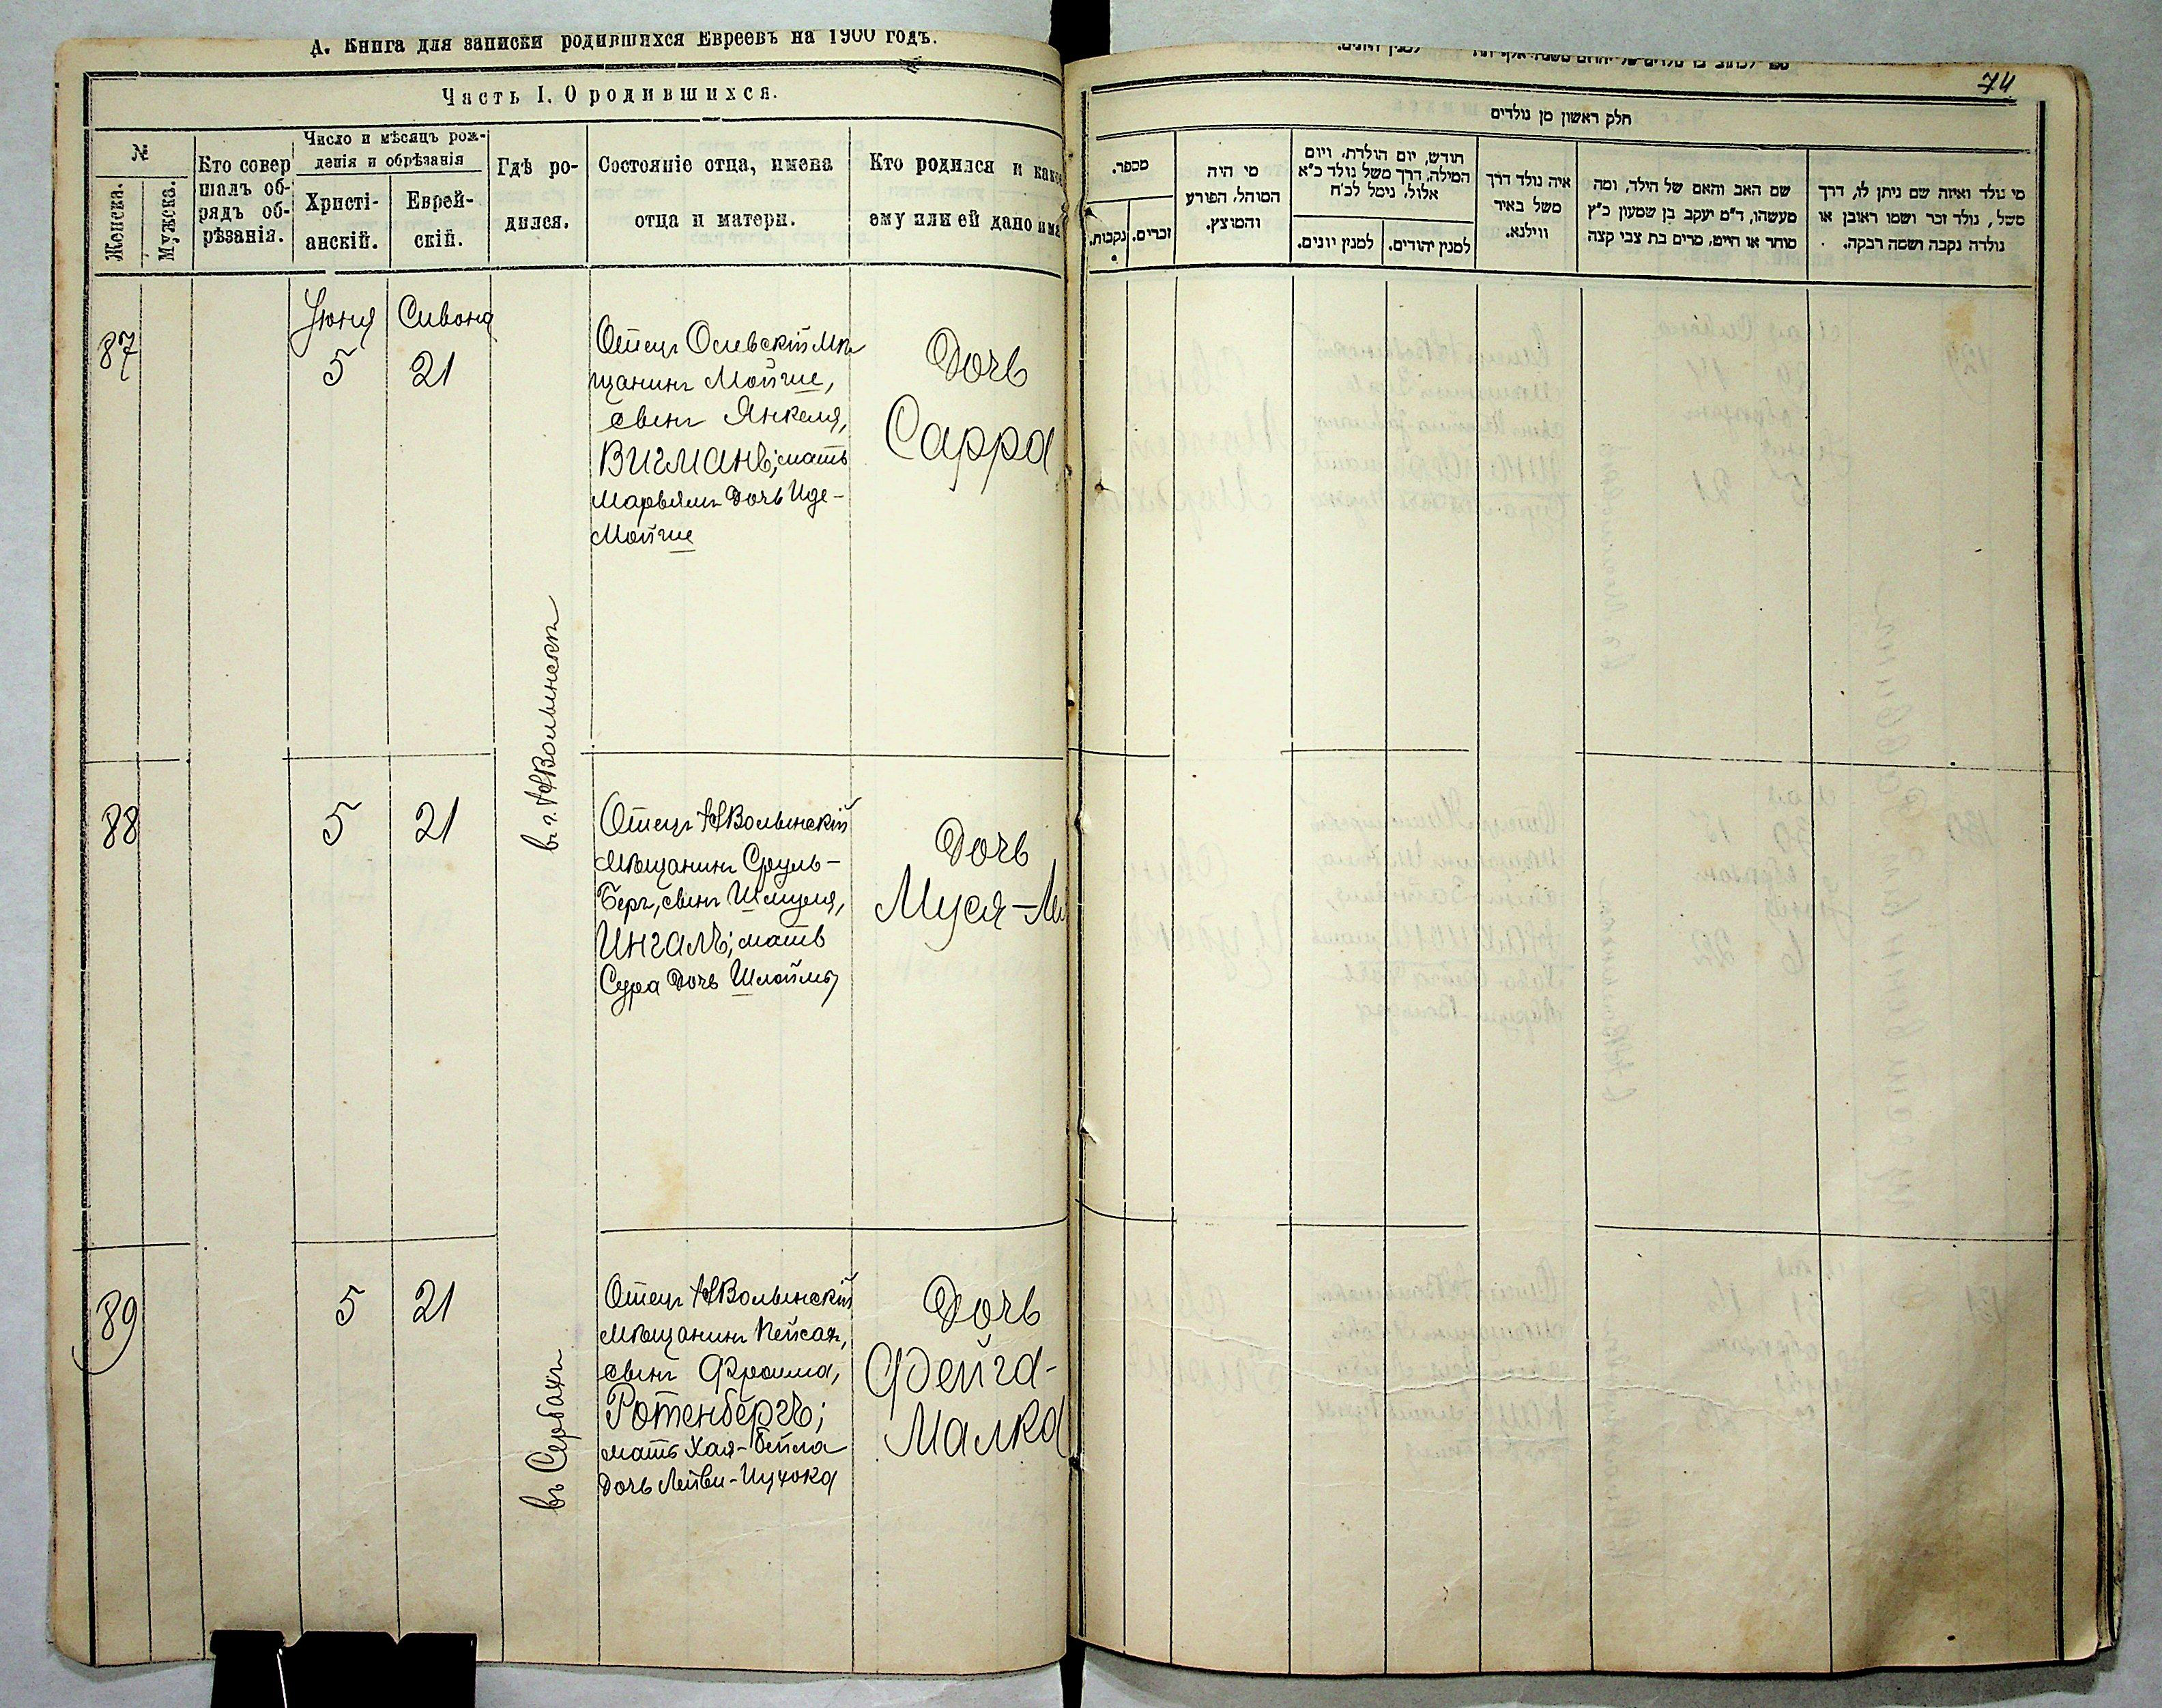 А. Книга для записки родившихся Евреевъ на 1900 годъ.
Часть I. О родившихся.
№
Женска.
Мужска.
Кто совер
шалъ об-
рядъ об-
рѣзанія.
Число и мѣсяцъ рож-
денія и обрѣзанія
Христі-
анскій.
Еврей-
скій.
Гдѣ ро-
дился.
Состояніе отца, имена
отца и матери.
Кто родился и како
ему или ей дано има
87
Іюня
5
Сивона
21
Отецъ Олевскій мѣ
щанинъ Мойше,
сынъ Янкеля,
Вигманъ; мать
Марьямъ дочь Иде-
Мойше
Дочь
Сарра
въ г. НВолынскѣ
88
5
21
Отецъ НВолынскій
мѣщанинъ Сруль-
Беръ, сынъ Шмуля,
Ингалъ; мать
Сура дочь Шлоймы
Дочь
Муся-
89
5
21
въ Сербахъ
Отецъ НВолынскій
мѣщанинъ Пейсах,
сынъ Фроима,
Ротенбергъ;
мать Хая-Бейла
дочь Лейви-Ицхока
Дочь
Фейга-
Малка
74
חלק ראשון מן נולדים
מספר.
נקבות.
זכרים.
מי היה
המוהל, הפורע
והמוצץ.
חודש, יום הולדת, ויום
המילה, דרך משל נולד כ"א
אלול, נימל לכ"ח
למנין יונים.
למנין יהודים.
איה נולד דרך
משל באיר
ווילנא.
שם האב והאם של הילד, ומה
מעשהו, ד"מ יעקב בן שמעון כ"ץ
סוחר או חייט, מרים בת צבי קצה
מי נולד ואיזה שם ניתן לו, דרך
משל, נולד זכר ושמו ראובן או
נולדה נקבה ושמה רבקה.